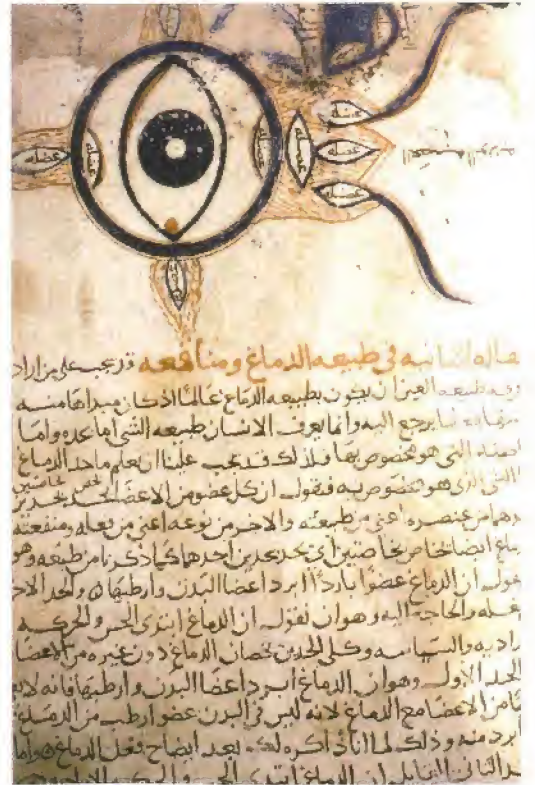 عضله
عضله
عضله
عضله
عضله
عضله
عضله
عضله
العصبه النوريه
الثانيه في طبيعه الدماغ ومنافعه قد يجب على من اراد
طبيعه العين ان يكون بطبيعه الدماغ عالما اذ كان مبداها منه
يرجع اليه وانما يعرف الانسان طبيعه الشي اما بحده واما
التي هو مخصوص بها فلذلك قد يجب علينا ان نعلم ما حد الدماغ
الشي الذي هو مخصوص به فنقول ان كل عضو من الاعضا يحد بحدين
من عنصره اعني من طبيعته والاخر من نوعه اعني من فعله ومنفعته
ايضا خاص بخاصتين اي يحد بحدين احدهما كما ذكرنا من طبيعه وهو
ان الدماغ عضوا باردا ابرد اعضا البدن وارطبها والحد الاخر
والحاجه اليه وهو ان نقول ان الدماغ ابتدى الحس والحركه
والسياسه وكلى الحدين يخصان الدماغ دون غيره من الاعضا
الحد الاول وهو ان الدماغ ابرد اعضا البدن وارطبها فانه
من الاعضا مع الدماغ لانه ليس في البدن عضو ارطب من الدماغ
ابرد منه وذلك لما انا ذاكره لك بعد ايضاح فعل الدماغ واما
الثاني القايل ان الدماغ ابتدى الحس والحركه